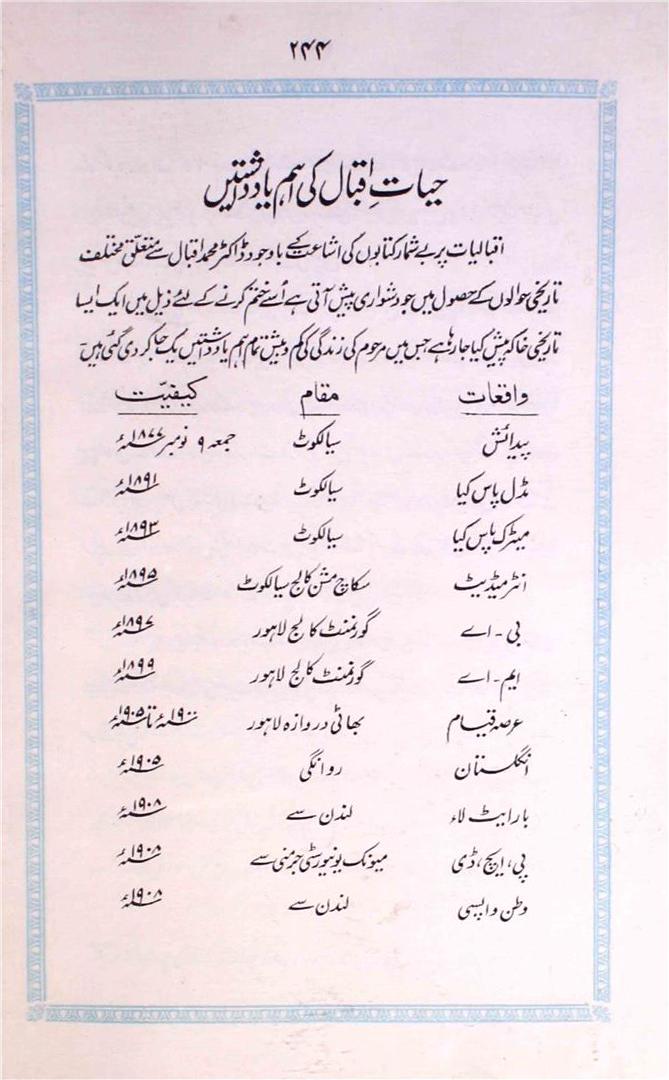 ۲۴۴
حیاتِ اقبال کی اہم یادداشتیں
اقبالیات پر بے شمار کتابوں کی اشاعت کے باوجود ڈاکٹر محمد اقبال سے متعلق مختلف
تاریخی حوالوں کے حصول میں جو دشواری پیش آتی ہے اُسے ختم کرنے کے لئے ذیل میں ایک ایسا
تاریخی خاکہ پیش کیا جا رہا ہے جس میں مرحوم کی زندگی کی کم و بیش تمام اہم یادداشتیں یک جا کر دی گئی ہیں
واقعات مقام کیفیّت
پیدائش سیالکوٹ جمعہ ۹ نومبر ۱۸۷۷ء
مڈل پاس کیا سیالکوٹ ۱۸۹۱ء
میٹرک پاس کیا سیالکوٹ ۱۸۹۳ء
انٹرمیڈیٹ سکاچ مشن کالج سیالکوٹ ۱۸۹۵ء
بی - اے گورنمنٹ کالج لاہور ۱۸۹۷ء
ایم - اے گورنمنٹ کالج لاہور ۱۸۹۹ء
عرصہ قیام بھاٹی دروازہ لاہور ۱۹۰۰ء تا ۱۹۰۵ء
انگلستان روانگی ۱۹۰۵ء
بار ایٹ لاء لندن سے ۱۹۰۸ء
پی، ایچ، ڈی میونک یونیورسٹی جرمنی سے ۱۹۰۸ء
وطن واپسی لندن سے ۱۹۰۸ء